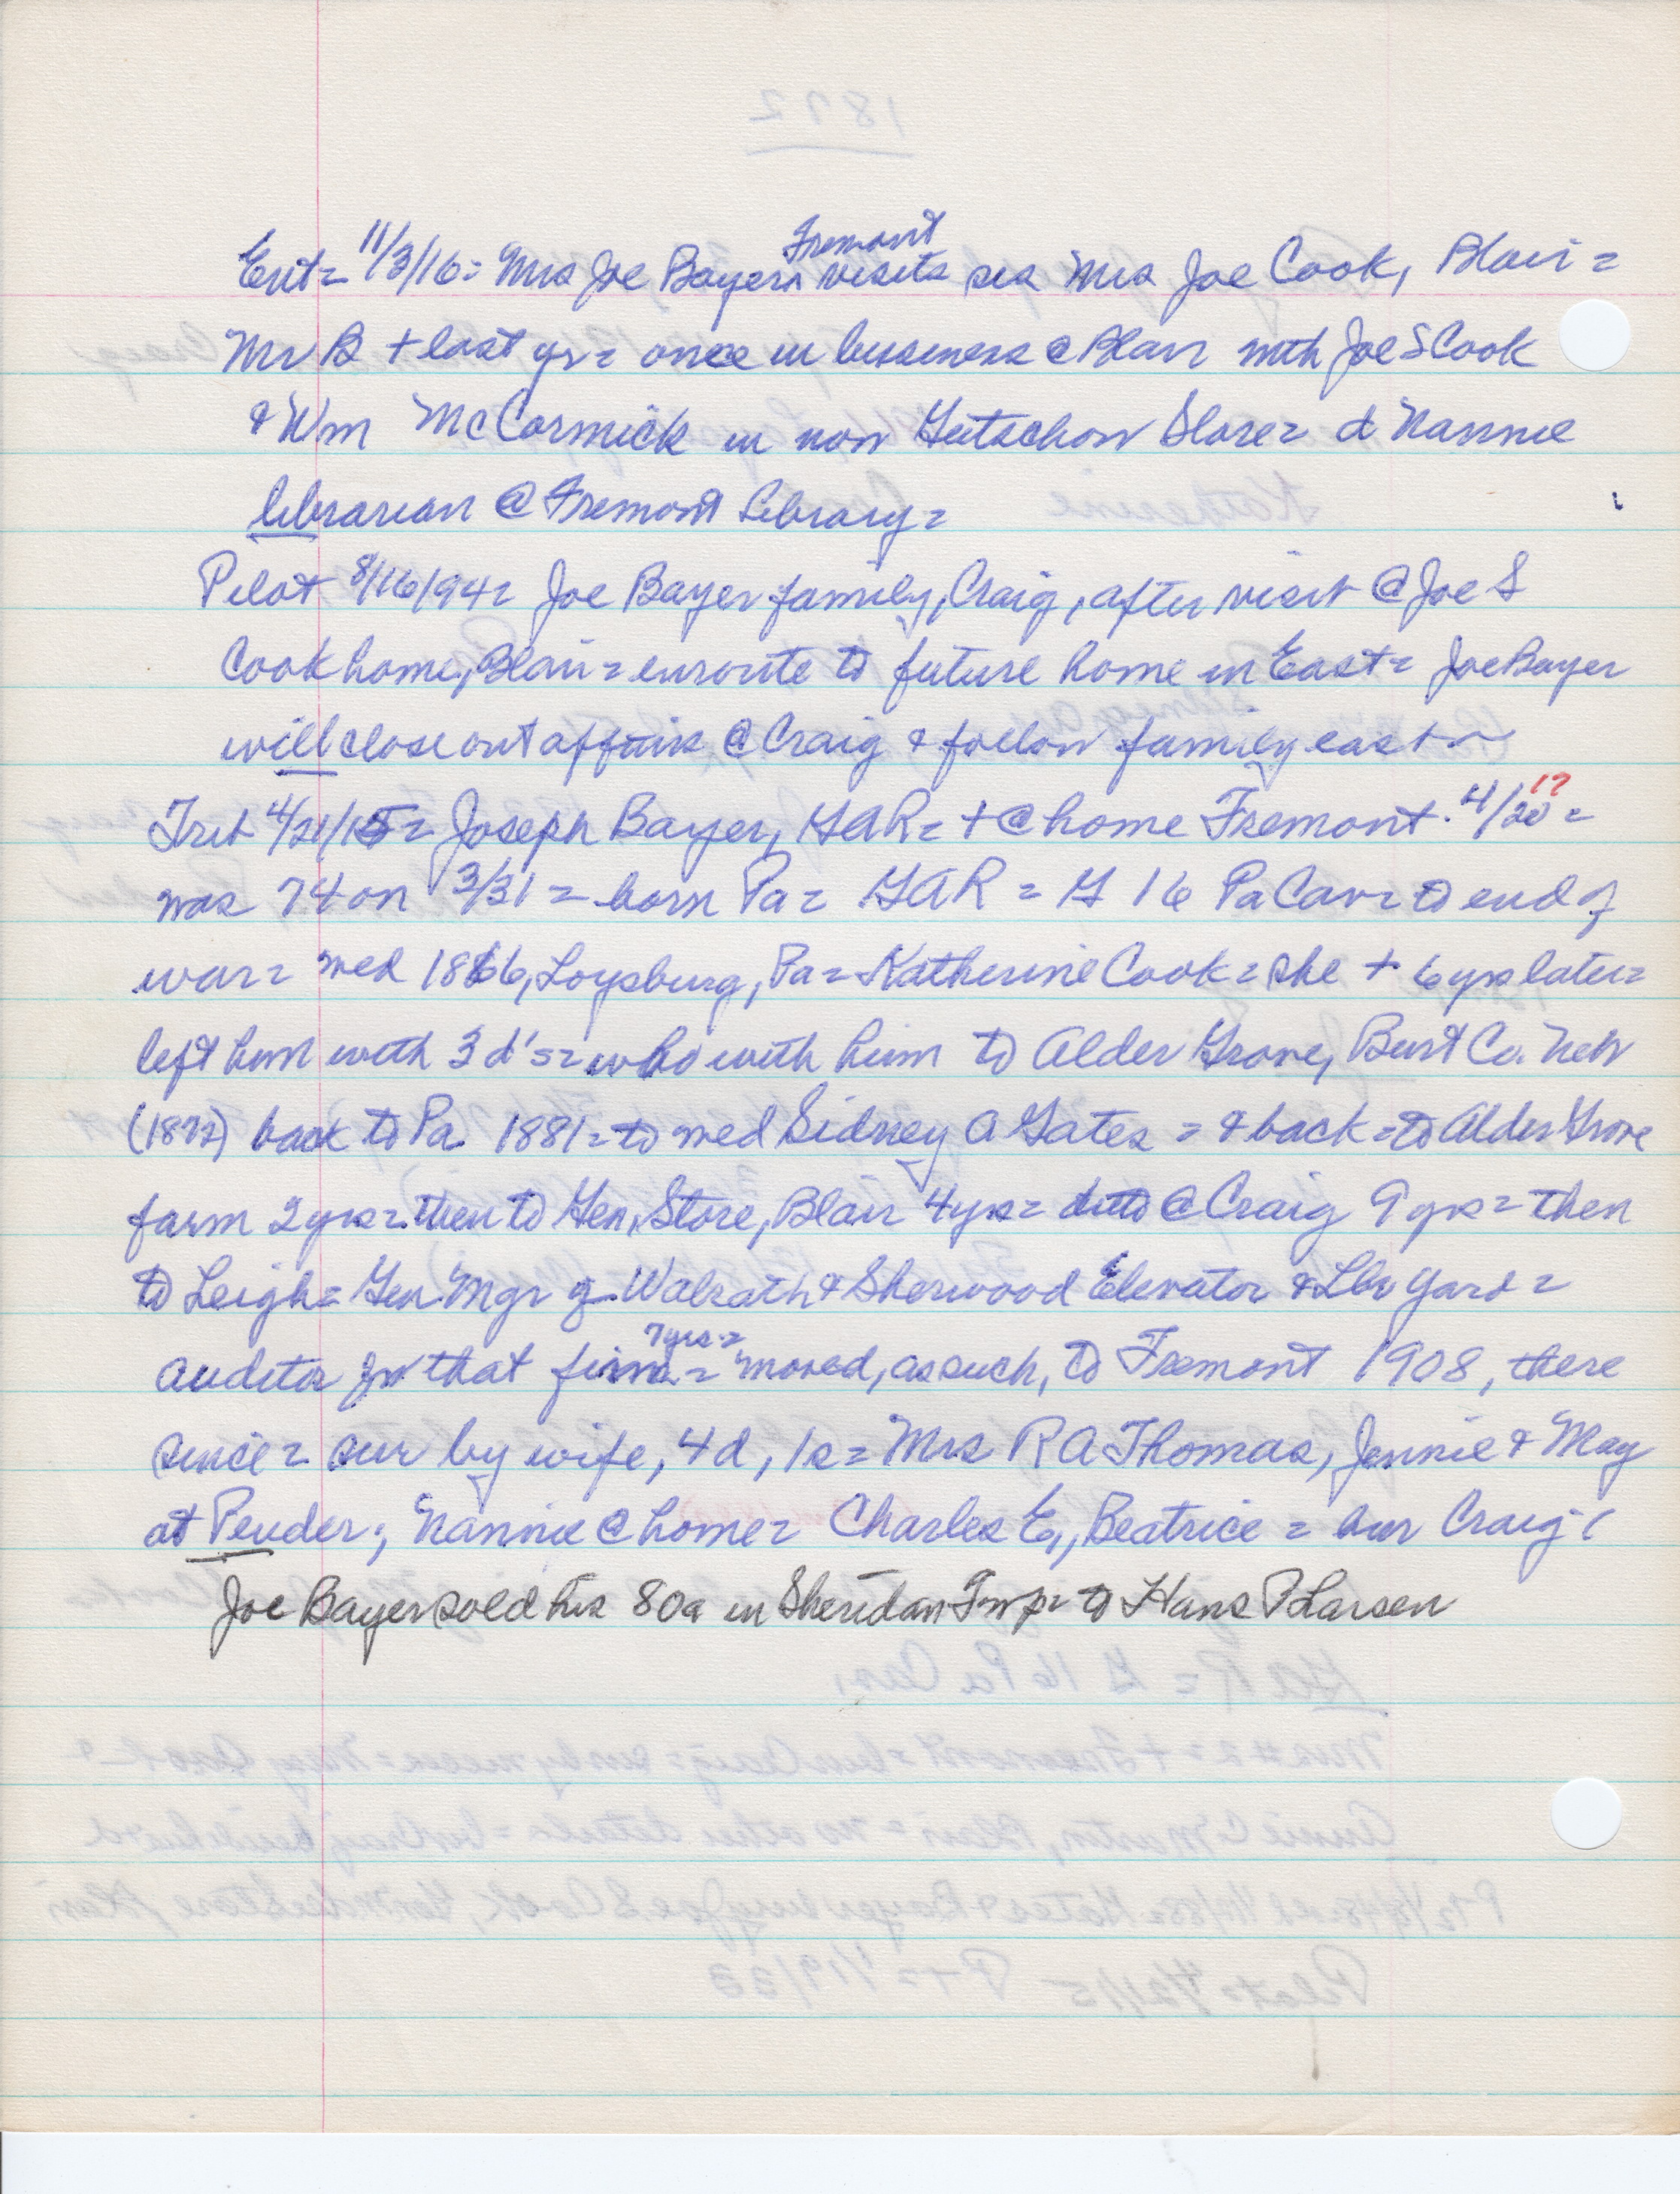 Ent= 11/3/16= Mrs Joe Bayer, Fremont visits sis Mrs Joe Cook, Blair =
Mr B + last yr = once in business @ Blair with Joe S Cook
& Wm McCormick in now Gutschow Store = d Nannie
librarian @ Fremont Library =
Pilot 8/16/94 = Joe Bayer family, Craig, after visit @ Joe S
Cook home, Blair = enroute to future home in East = Joe Bayer
will close out affairs @ Craig & follow family east ~
Trib 4/21/15 = Joseph Bayer, GAR = + @ home Fremont. 4/20 = 1?
was 74 on 3/31 = born Pa = GAR = G 16 Pa Cav = to end of
war = med 1866, Loysburg, Pa = Katherine Cook = she + 6 yrs later =
left him with 3 d's = who with him to Alder Grove, Burt Co. Neb
(1872) back to Pa. 1881 = to med Sidney A Gates = & back = to Alder Grove
farm 2 yrs = then to Gen. Store, Blair 4 yrs = ditto @ Craig 9 yrs = then
to Leigh = Gen. Mgr of Walrath & Sherwood Elevator & Lbr Yard =
auditor for that firm = 7 yrs = moved, as such, to Fremont 1908, there
since = sur by wife, 4 d, 1 s = Mrs R A Thomas, Jennie & May
at Pender; Nannie @ home = Charles E., Beatrice = bur Craig (
Joe Bayer sold his 80a in Sheridan Twp = to Hans P Larsen